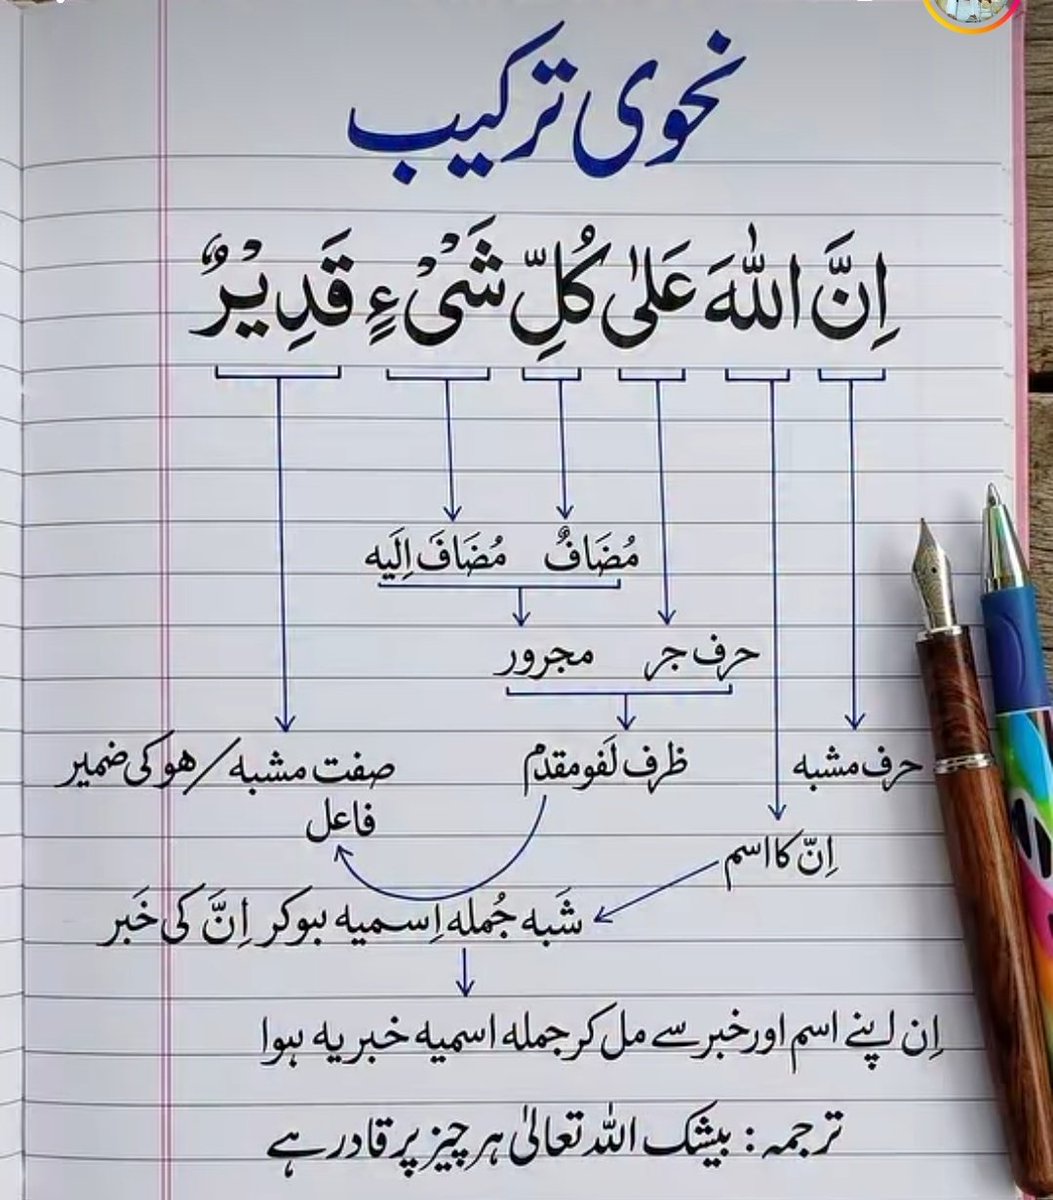 نحوی ترکیب
اِنَّ اللّٰهَ عَلٰی كُلِّ شَیْءٍ قَدِیْرٌ
مُضَافٌ مُضَافَ اِلَیه
حرف جر مجرور
حرف مشبه ظرف لَفو مقدم صفت مشبه/هو کی ضمیر
فاعل
اِنّ کا اسم
شَبه جُمله اِسمیه ہوکر اِنَّ کی خَبر
اِن اپنے اسم اور خبر سے مل کر جمله اسمیه خبریه ہوا
ترجمہ: بیشک اللہ تعالیٰ ہر چیز پر قادر ہے